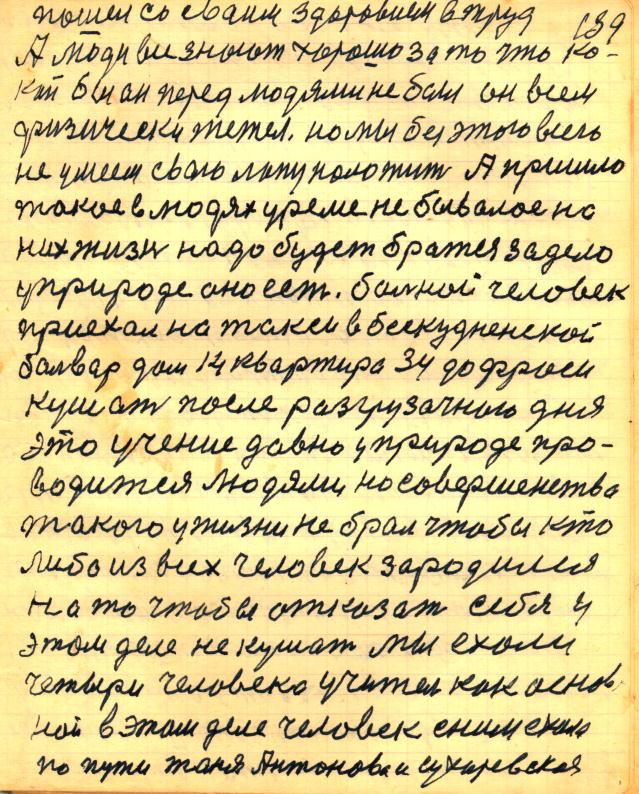 пошел со своим здоровием в труд 139
А люди все знают хорошо за то что ко-
кой бы он перед людями не был он всем
физически тежел. но мы без этого всего
не умеем свого лапу положит А пришло
такое в людях уреме не бывалое на
них жизн надо будет братся за дело
у природе оно ест. болной человек
приехал на такси в бескудненской
балвар дом 14 квартира 34 до фроси
кушат после разгрузачного дня
это учение давно у природе про-
водится людями но совершенства
такого у жизни не брал чтобы кто
либо из всех человек зародился
на то чтобы отказат себя у
этом деле не кушат мы ехали
четыри человека учител как основ
ной в этом деле человек сним ехала
по пути таня Антонова и сухаревская